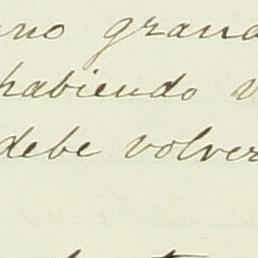 uno grand
habiendo v
debe volver